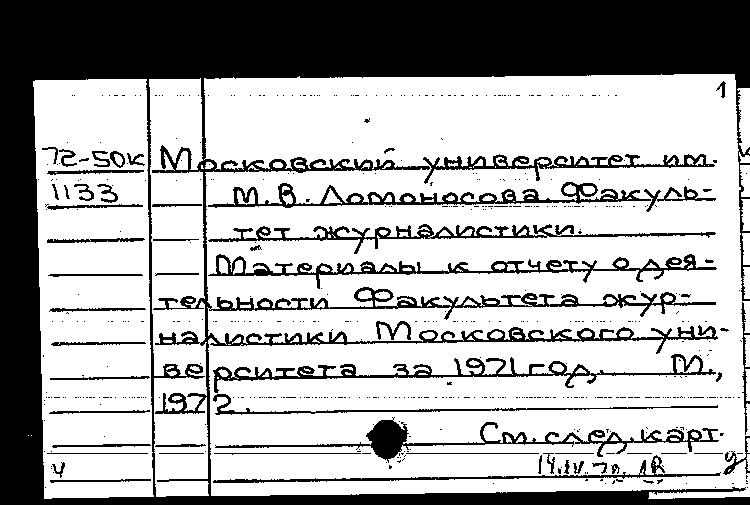 1
72-50к Московский университет им.
1133 М.В. Ломоносова. Факуль-
тет журналистики.
Материалы к отчету о дея-
тельности Факультета жур-
налистики Московского уни-
верситета за 1971 год. М.,
1972.
См. след. карт.